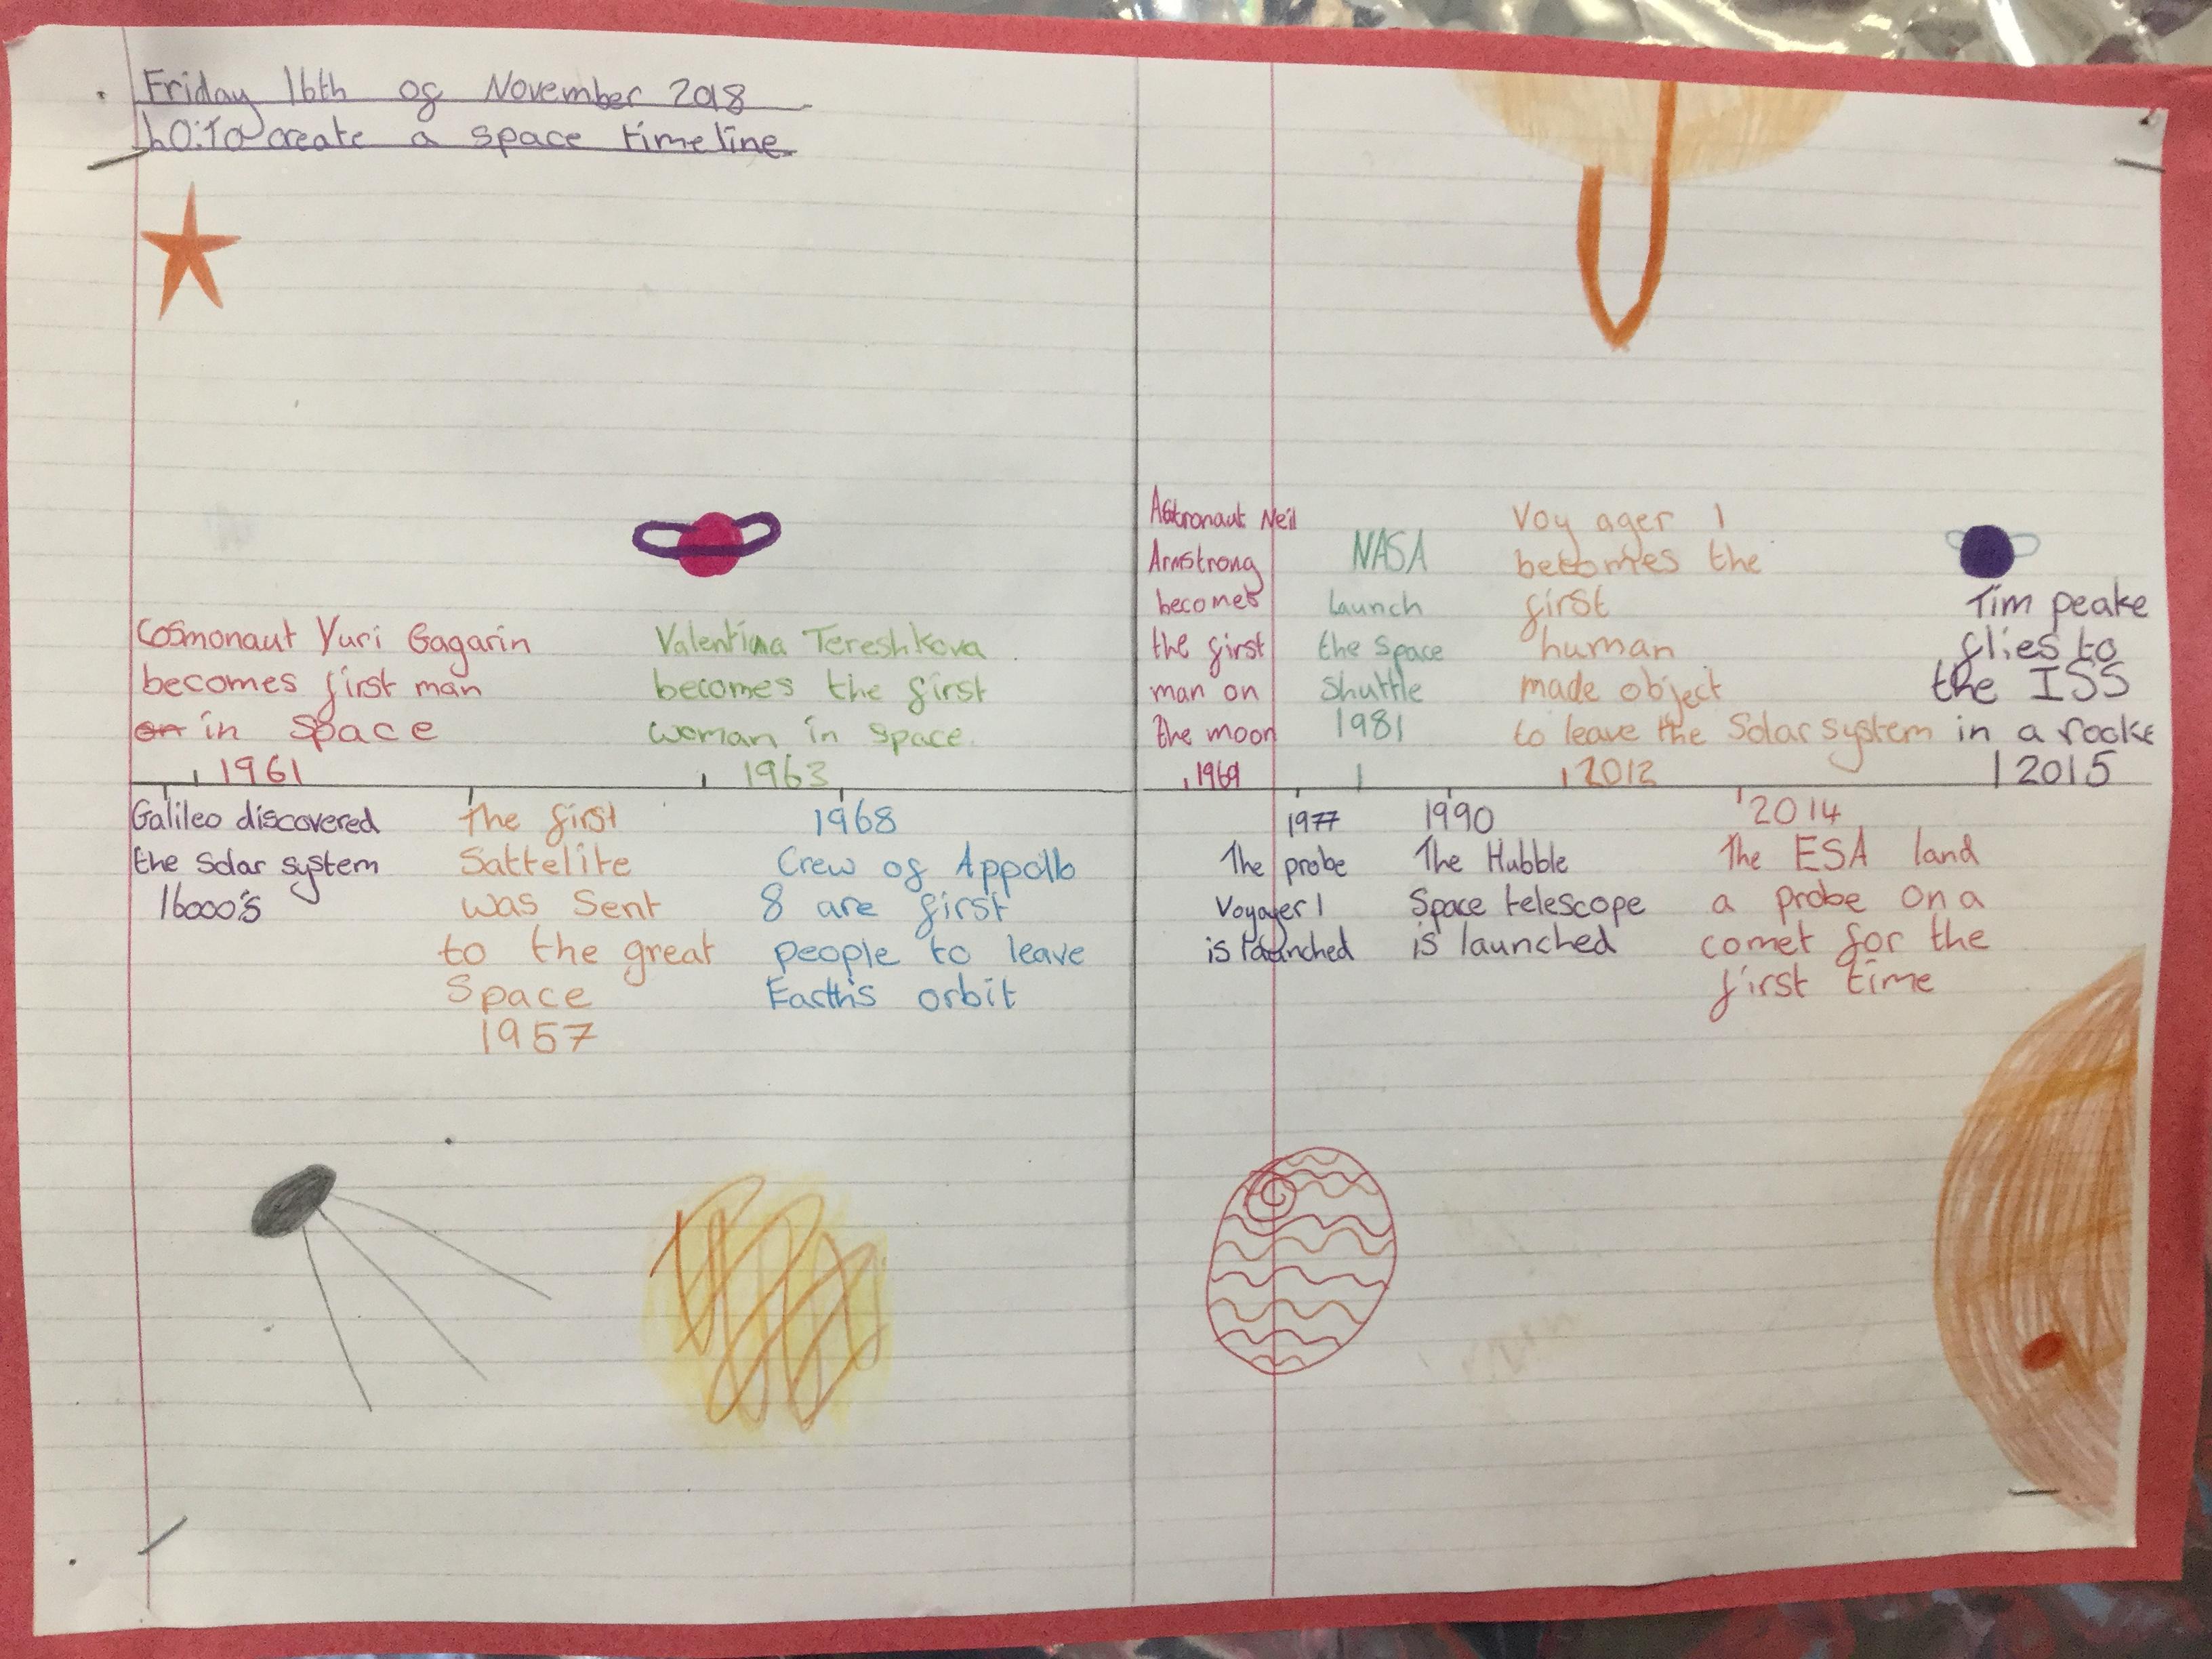 Friday 16th of November 2018
LO: To create a space timeline
Cosmonaut Yuri Gagarin
becomes first man
on in space
1961
Valentina Tereshkova
becomes the first
woman in space.
1963
Astronaut Neil
Armstrong
becomes
the first
man on
the moon
1969
NASA
launch
the space
shuttle
1981
Voyager 1
becomes the
first
human
made object
to leave the Solar system
2012
Tim peake
flies to
the ISS
in a rocke
2015
Galileo discovered
the solar system
16000's
The first
Sattelite
was sent
to the great
Space
1957
1968
Crew of Appollo
8 are first
people to leave
Earth's orbit
1977
The probe
Voyager 1
is launched
1990
The Hubble
Space telescope
is launched
2014
The ESA land
a probe on a
comet for the
first time